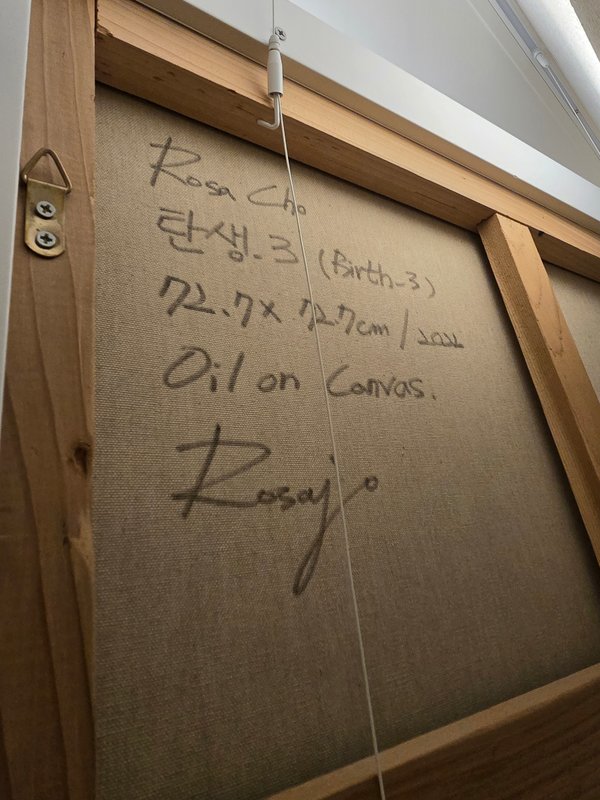 Rosa Cho
탄생.3 (Birth-3)
72.7 x 72.7cm / 2022
Oil on Canvas.
Rosajo